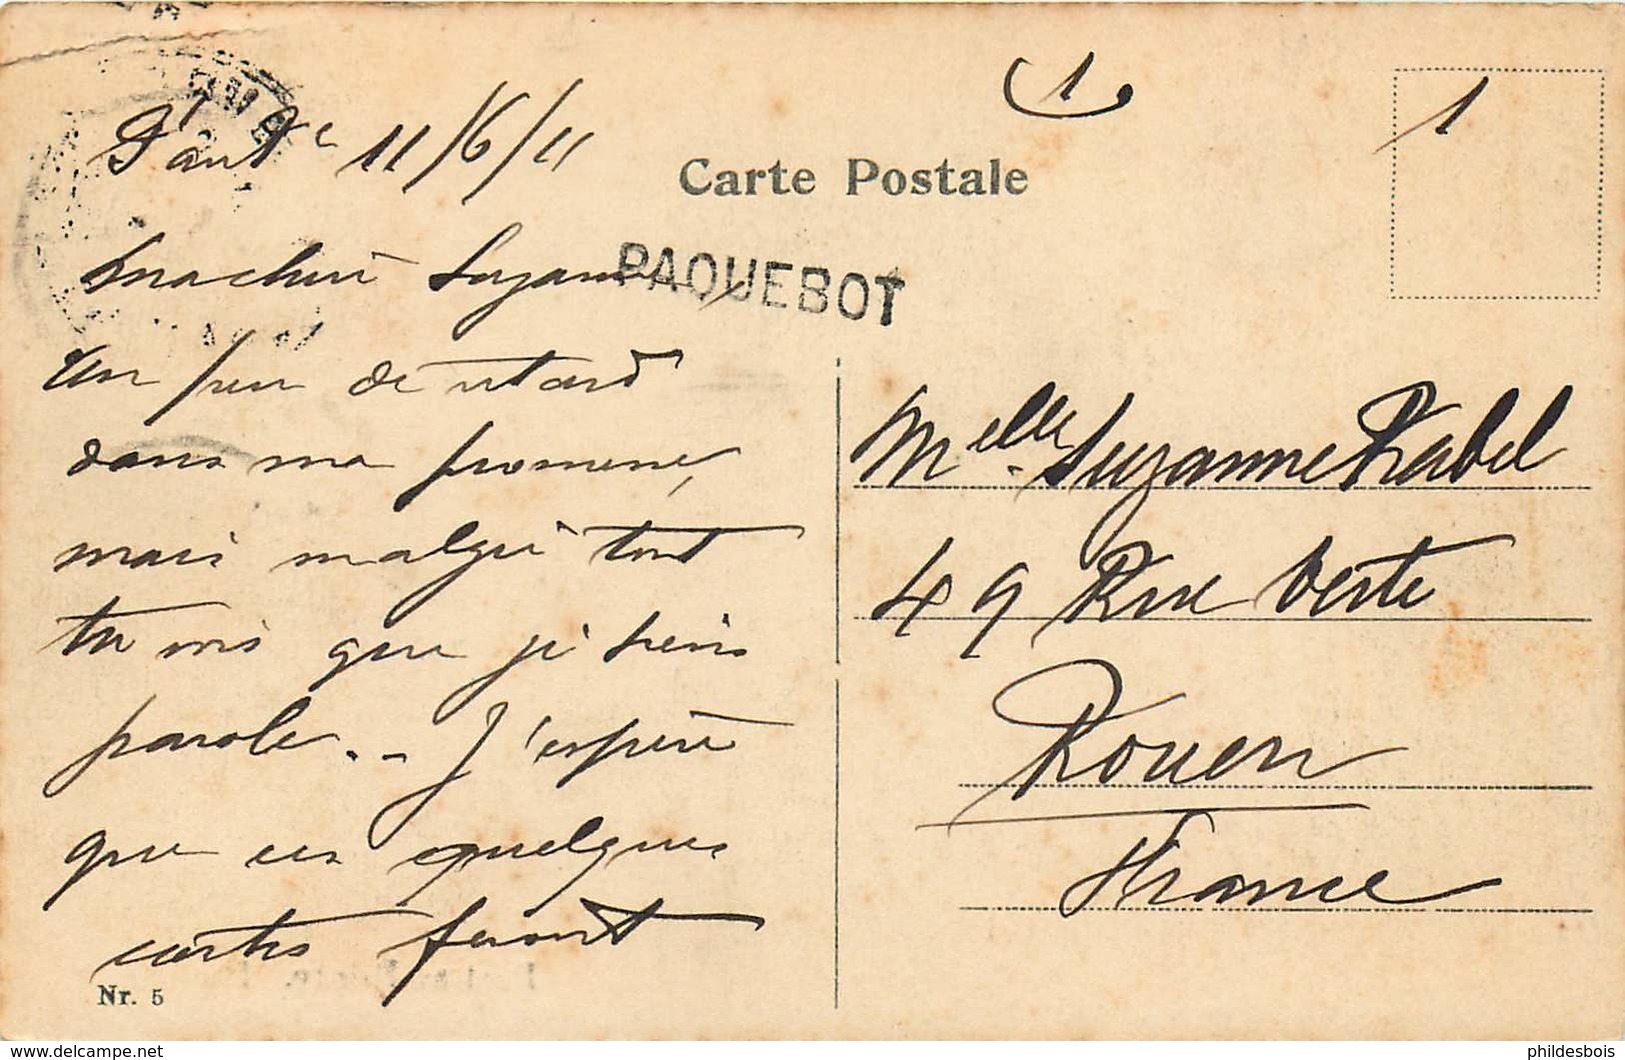 11/6/11
1
1
Carte Postale
PAQUEBOT
ma chère Suzanne,
Un peu de retard
dans ma promesse,
mais malgré tout
tu vois que je tiens
parole.. J'espère
que ces quelques
cartes feront
Nr. 5
Melle Suzanne Rabel
49 Rue Verte
Rouen
France
phildesbois
www.delcampe.net